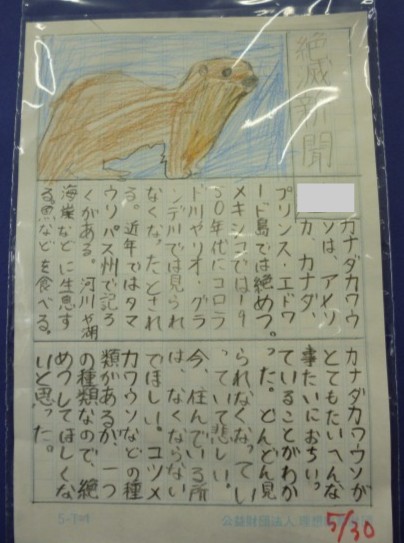 絶滅新聞
カナダカワウ
ソは、アメリ
カ、カナダ、
プリンス・エドワ
ード島では絶めつ。
メキシコでは19
50年代にコロラ
ド川やリオ・グラ
ンデ川では見られ
なくなったとされ
る。近年ではタマ
ウリパス州で記ろ
くがある。河川や湖
海岸などに生息す
る魚などを食べる。
カナダカワウソが
とてもたいへんな
事たいにおちいっ
ていることがわか
った。どんどん見
られなくなってし
っていて悲しい。
今、住んでいる所
は、なくならない
でほしい。コツメ
カワウソなどの種
類があるが、一つ
の種類なので、絶
めつしてほしくな
いと思った。
公益財団法人 理想
5/30